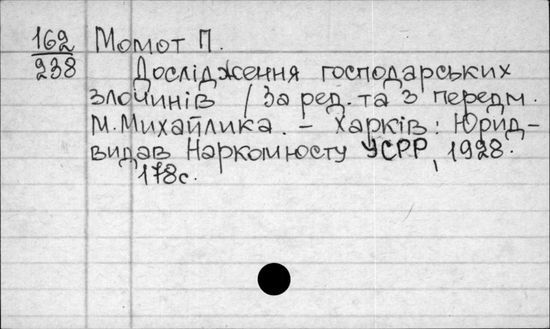 162 Момот П.
238 Дослідження господарських
злочинів / За ред. та з передм.
М. Михайлика. – Харків: Юрид-
видав Наркомюсту УСРР, 1928.
178с.